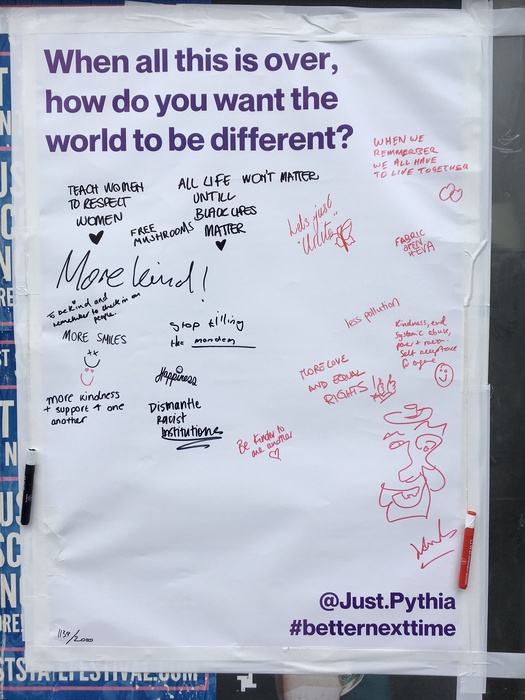 When all this is over,
how do you want the
world to be different?
WHEN WE
REMMERBER
WE ALL HAVE
TO LIVE TOGETHER
TEACH WOMEN
TO RESPECT
WOMEN
ALL LIFE WON'T MATTER
UNTILL
BLACK LIFES
MATTER
FREE
MUSHROOMS
Let's just
"Unite"
FABRIC
OPEN
4EVA
More kind!
To be kind and
remember to check in on
people.
MORE SMILES
Stop killing
the mandem
less pollution
Kindness, end
systemic abuse,
Self acceptance
MORE LOVE
AND EQUAL
RIGHTS
Happiness
more kindness
+ support + one
another
Dismantle
racist
institutions
Be kinder to
one another
@Just.Pythia
#betternexttime
1134/2000
STSTATEFESTIVAL.COM